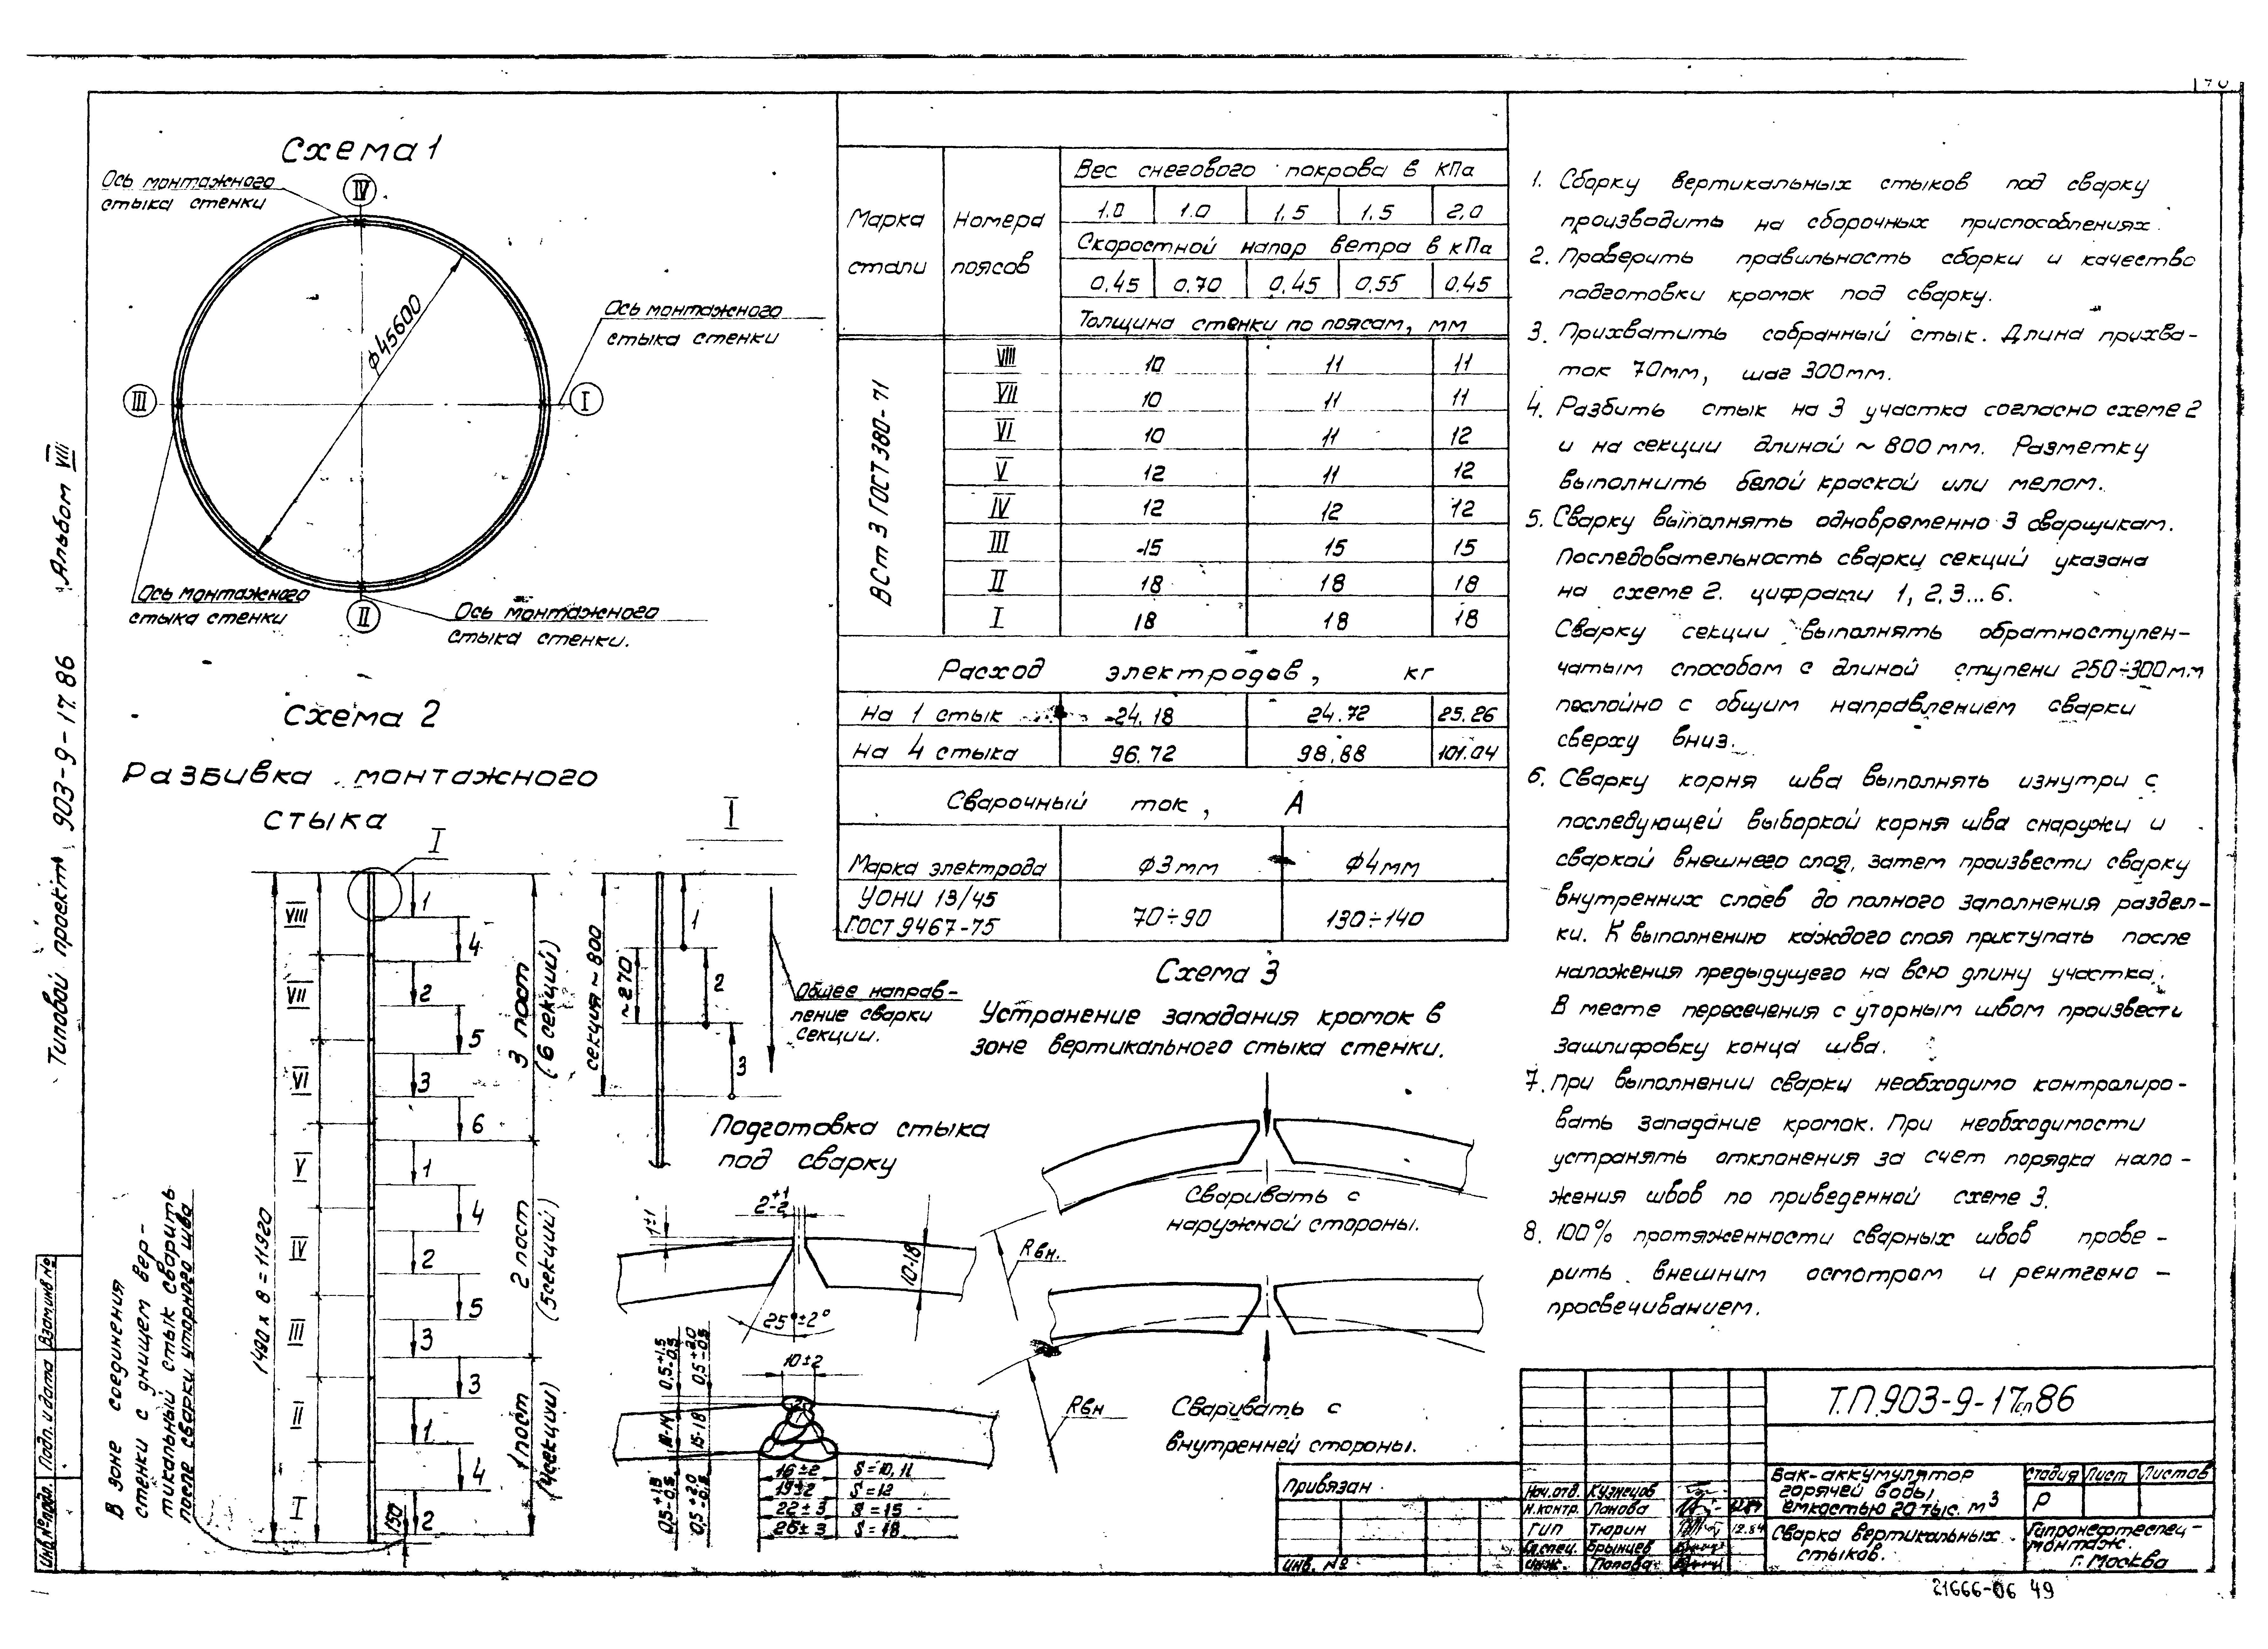 Схема 1
Ось монтажного
стыка стенки
IV
Ось монтажного
стыка стенки
ф45600
III
I
Ось монтажного
стыка стенки
II
Ось монтажного
стыка стенки.
Схема 2
Разбивка монтажного
стыка
I
VIII
VII
VI
V
IV
III
II
I
1490 х 8 = 11920
1
4
2
5
3
6
1
4
2
5
3
3
1
4
2
150
3 пост
(6 секций)
2 пост
(5секций)
1 пост
(4секции)
В зоне соединения
стенки с днищем вер-
тикальный стык сварить
после сварки уторного шва
I
секция ~ 800
~270
1
2
3
Общее направ-
ление сварки
секции.
Подготовка стыка
под сварку
1±1
10-18
25°±2°
10±2
0,5+1.5-0.5
0,5+2.0-0.5
15-18
0,5+2.0-0.5
16±2 S=10,11
19±2 S=12
22±3 S=15
26±3 S=18
Марка
стали
Номера
поясов
Вес снегового покрова в кПа
1.0 1.0 1.5 1.5 2.0
Скоростной напор ветра в кПа
0.45 0.70 0.45 0.55 0.45
Толщина стенки по поясам, мм
ВСт 3 ГОСТ 380-71
VIII 10 11 11
VII 10 11 11
VI 10 11 12
V 12 11 12
IV 12 12 12
III 15 15 15
II 18 18 18
I 18 18 18
Расход электродов, кг
На 1 стык 24.18 24.72 25.26
На 4 стыка 96.72 98.88 101.04
Сварочный ток, А
Марка электрода ф3мм ф4мм
УОНИ 13/45
ГОСТ 9467-75 70÷90 130÷140
Схема 3
Устранение западания кромок в
зоне вертикального стыка стенки.
Сваривать с
наружной стороны.
Rвн.
Rвн
Сваривать с
внутренней стороны.
1. Сборку вертикальных стыков под сварку
производить на сборочных приспособлениях.
2. Проверить правильность сборки и качество
подготовки кромок под сварку.
3. Прихватить собранный стык. Длина прихва-
ток 70мм, шаг 300мм.
4. Разбить стык на 3 участка согласно схеме 2
и на секции длиной ~ 800 мм. Разметку
выполнить белой краской или мелом.
5. Сварку выполнять одновременно 3 сварщикам.
Последовательность сварки секций указана
на схеме 2. цифрами 1, 2, 3...6.
Сварку секции выполнять обратноступен-
чатым способом с длиной ступени 250÷300мм
послойно с общим направлением сварки
сверху вниз.
6. Сварку корня шва выполнять изнутри с
последующей выборкой корня шва снаружи и
сваркой внешнего слоя, затем произвести сварку
внутренних слоев до полного заполнения раздел-
ки. К выполнению каждого слоя приступать после
наложения предыдущего на всю длину участка.
В месте пересечения с уторным швом произвести
зашлифовку конца шва.
7. При выполнении сварки необходимо контролиро-
вать западание кромок. При необходимости
устранять отклонения за счет порядка нало-
жения швов по приведенной схеме 3.
8. 100% протяженности сварных швов прове-
рить внешним осмотром и рентгено-
просвечиванием.
Т.П.903-9-17сп86
Бак-аккумулятор
горячей воды
емкостью 20 тыс. м3
Стадия Лист Листов
Р
Сварка вертикальных
стыков.
Гипронефтеспец-
монтаж.
г. Москва
Нач.отд. Кузнецов
Н.контр. Панова
ГИП Тюрин 12.84
Гл.спец. Брынцев
инж. Попова
Привязан
инв. №
21666-06 49
Типовой проект 903-9-17.86 Альбом VIII
Инв.№подл. Подп. и дата Взам.инв.№